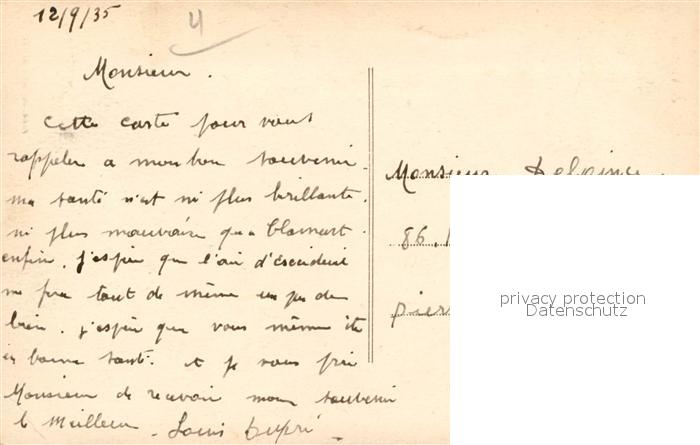 12/9/35
4
Monsieur.
Cette carte pour vous
rappeler a mon bon souvenir.
ma santé n'est ni plus brillante.
ni plus mauvaise qu'a Clamart.
enfin, j'espère que l'air d'
me fera tout de même un peu de
bien. j'espère que vous même ête
en bonne santé. et je vous prie
Monsieur de recevoir mon souvenir
le Meilleur. Louis Dupré
Monsieur
86.
pier
privacy protection
Datenschutz